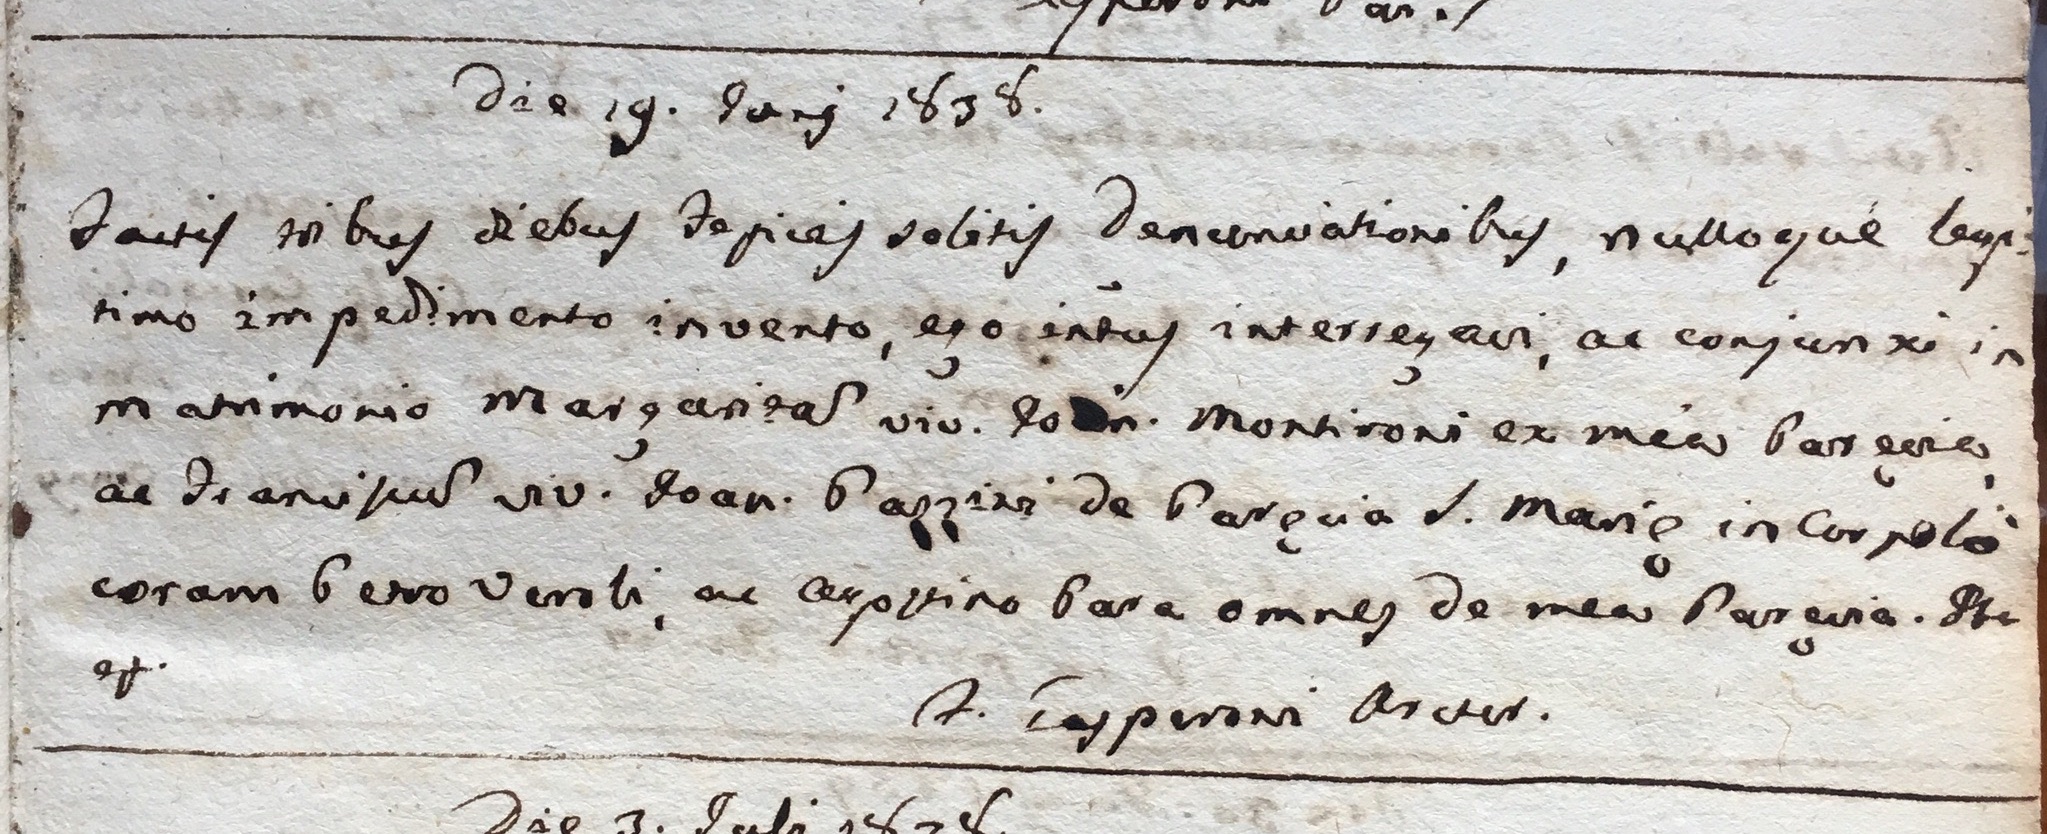 Die 19. Junj 1838.
Factis tribus diebus Festivis solitis Denunciationibus, nulloque legi-
timo impedimento invento, ego intus interrogavi, ac conjunxi in
matrimonio Margaritam viv. Joan. Montironi ex mea Paręcia,
ac Franciscum viv. Joan. Pazzini de Paręcia S. Marię in Corpolò
coram Petro Veroli, ac Agostino Para omnes de mea Paręcia. Ita
est.
F. Gasperoni Archr.
Die 3. Juli 1838.